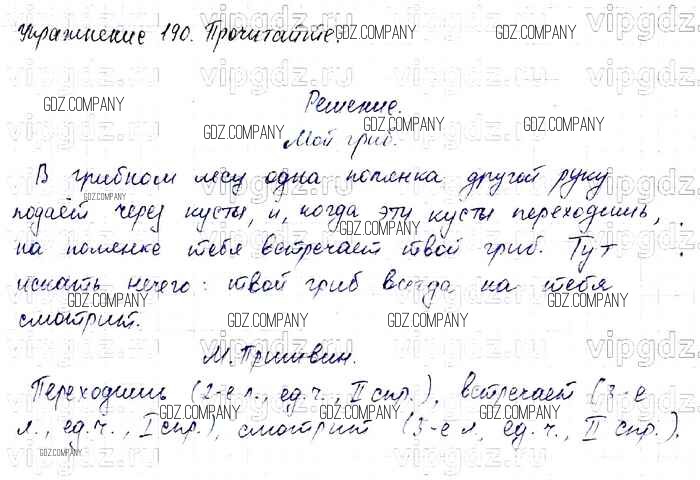 Упражнение 190. Прочитайте.
Решение.
Мой гриб.
В грибном лесу одна полянка другой руку
подаёт через кусты, и, когда эти кусты переходишь,
на полянке тебя встречает твой гриб. Тут
искать нечего: твой гриб всегда на тебя
смотрит.
М. Пришвин.
Переходишь (2-е л., ед. ч., II спр.), встречает (3-е
л., ед. ч., I спр.), смотрит (3-е л, ед. ч., II спр.).
GDZ.COMPANY
vipgdz.ru